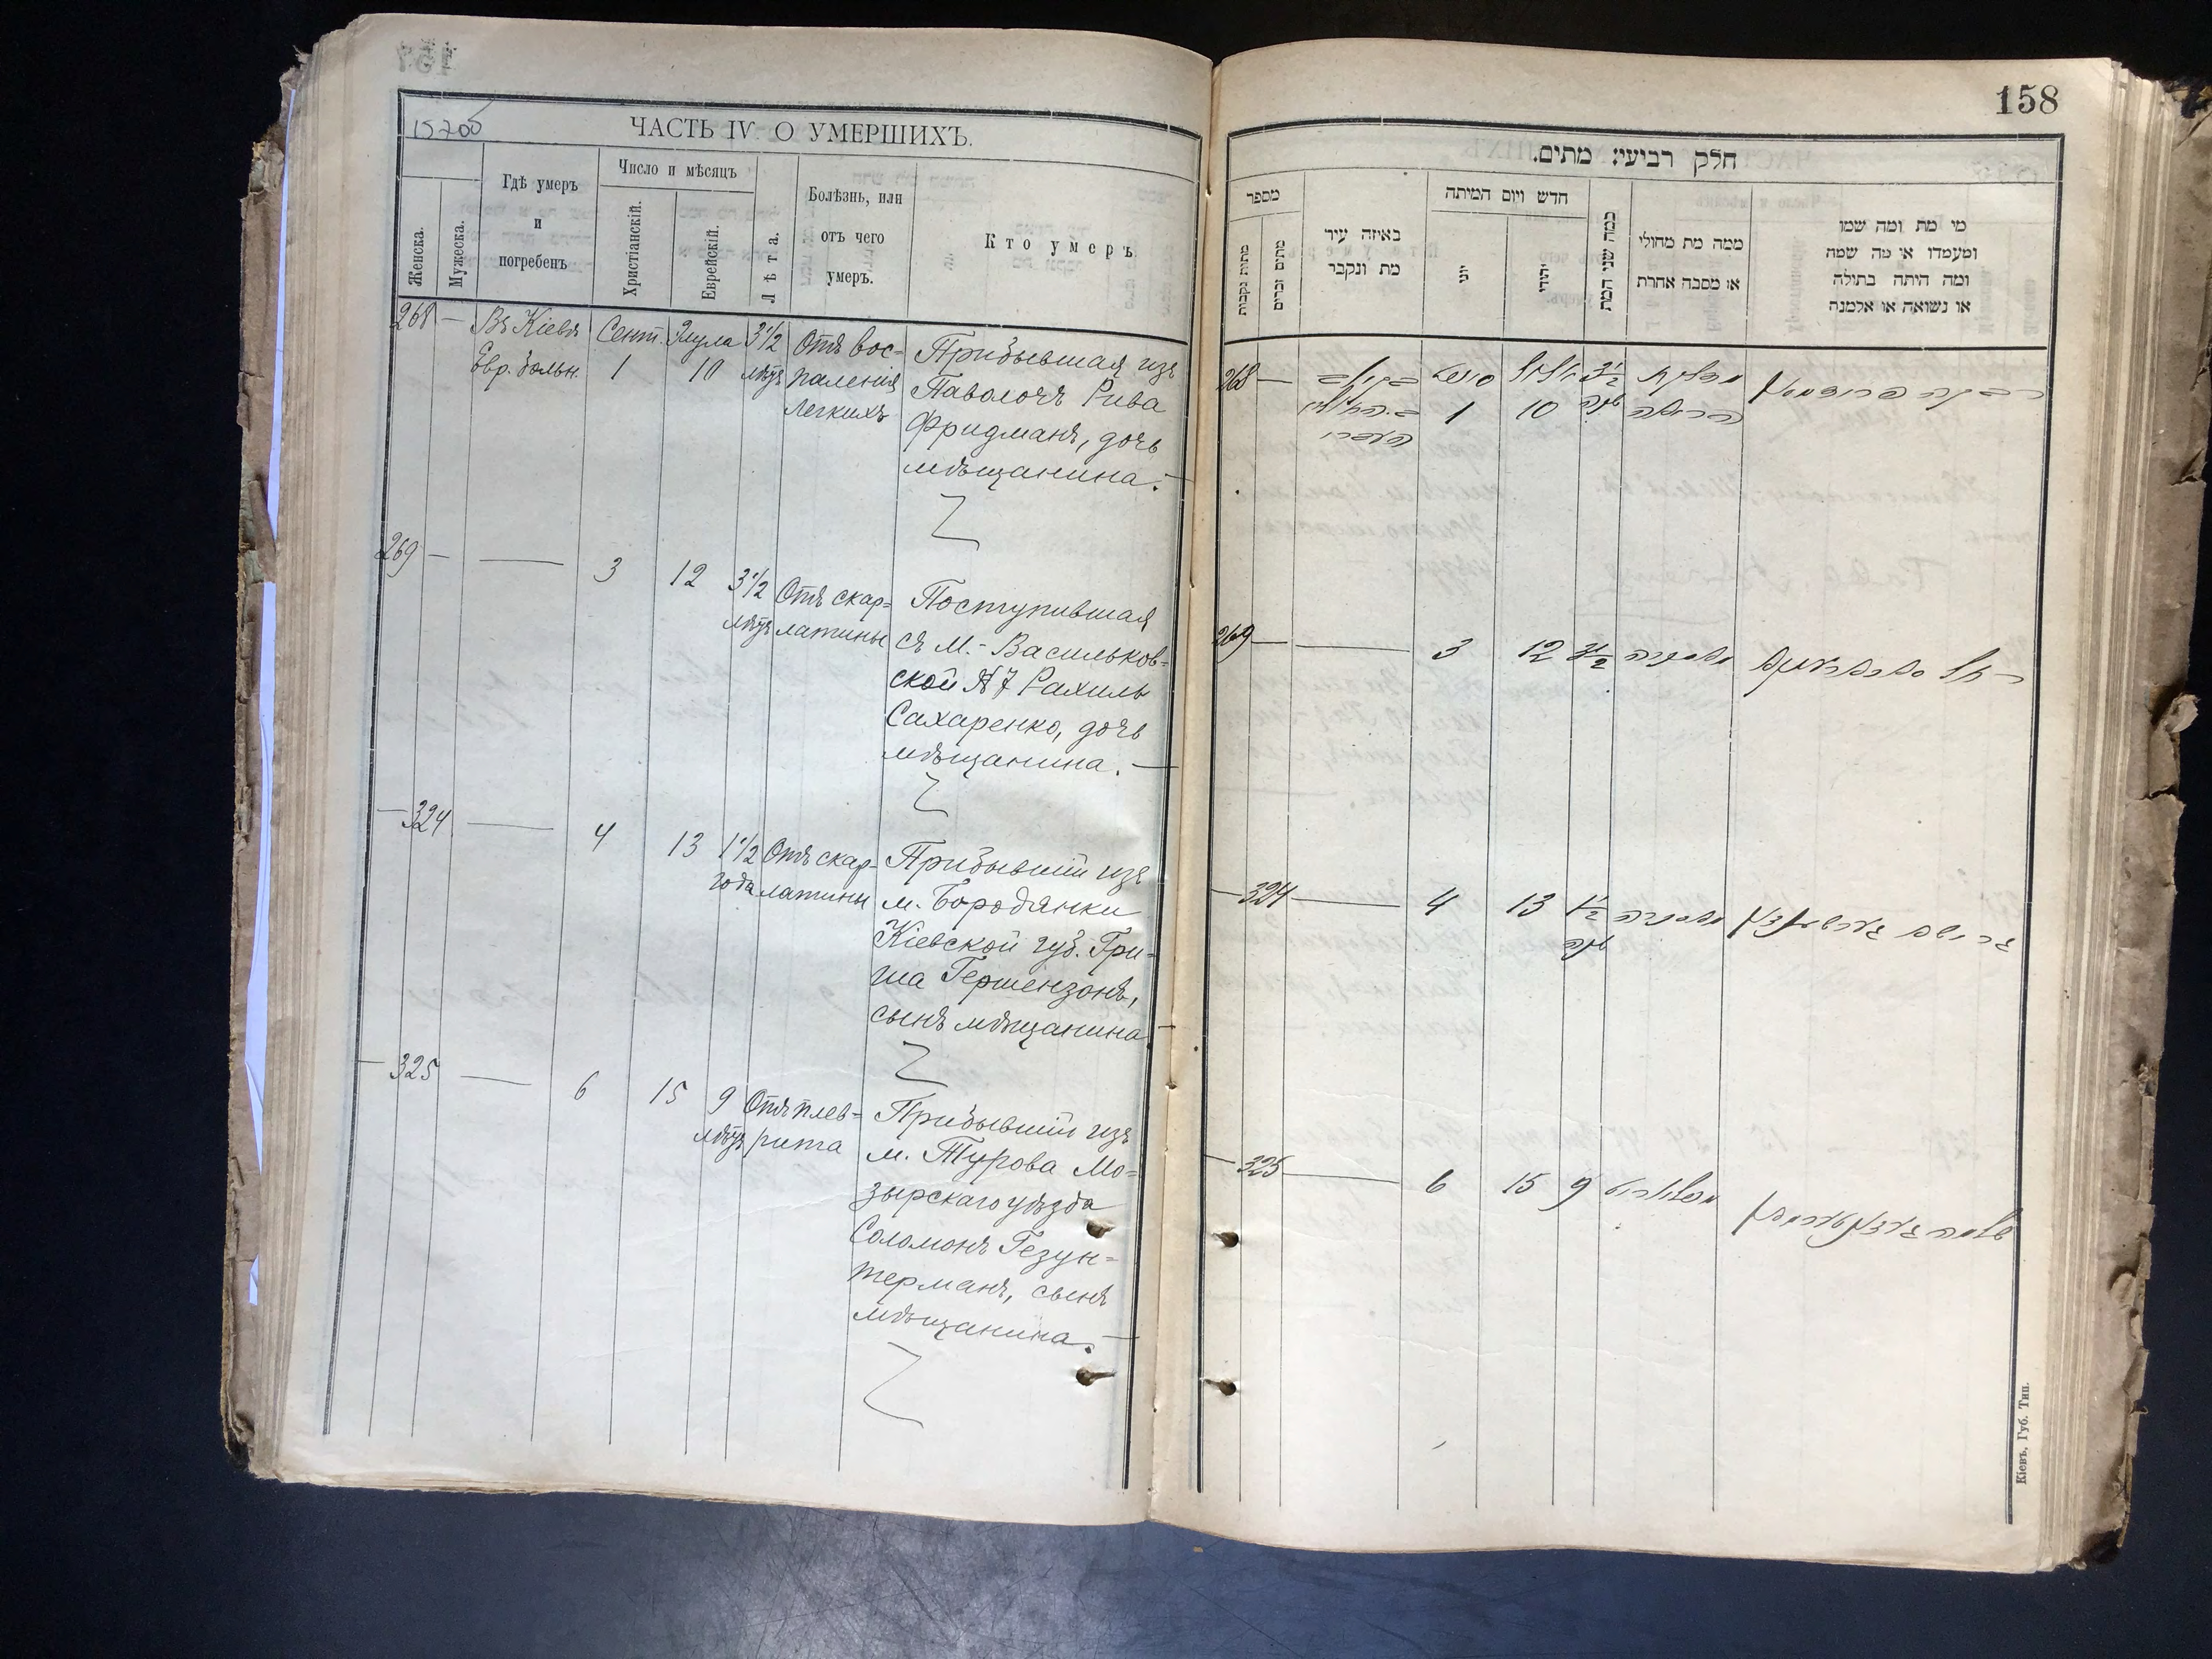 157об
ЧАСТЬ IV. О УМЕРШИХЪ.
Женска.
Мужеска.
Гдѣ умеръ
и
погребенъ
Число и мѣсяцъ
Христіанскій.
Еврейскій.
Лѣта.
Болѣзнь, или
отъ чего
умеръ.
Кто умеръ.
268 —
Въ Кіевѣ
Евр. больн.
Сент.
1
Элула
10
3 1/2
лѣтъ
Отъ вос=
паленія
легкихъ
Прибывшая изъ
Паволочъ Рива
Фридманъ, дочь
мѣщанина. —
269 — — 3 12 3 1/2
лѣтъ
Отъ скар=
латины
Поступившая
съ М.-Васильков=
ской № 7 Рахиль
Сахаренко, дочь
мѣщанина. —
— 324 — 4 13 1 1/2
года
Отъ скар=
латины
Прибывшій изъ
м. Бородянки
Кіевской губ. Гри=
ша Гершензонъ,
сынъ мѣщанина —
— 325 — 6 15 9
лѣтъ
Отъ плев=
рита
Прибывшій изъ
м. Турова Мо=
зырскаго уѣзда
Соломонъ Гезун=
терманъ, сынъ
мѣщанина. —
158
חלק רביעי: מתים.
מספר
מתות נקבות
מתים זכרים
באיזה עיר
מת ונקבר
חדש ויום המיתה
יוני
יהודי
כמה שני המת
ממה מת מחולי
או מסבה אחרת
מי מת ומה שמו
ומעמדו או מה שמה
ומה היתה בתולה
או נשואה או אלמנה
268 —
1
אלול
10
3 1/2
שנה
מדלקת
הריאה
רבקה פרידמאן
269 — — 3 12 3 1/2
רחל
— 324 — 4 13 1 1/2
שנה
גרישא גערשענזאן
— 325 — 6 15 9
שלמה
Кіевъ, Губ. Тип.